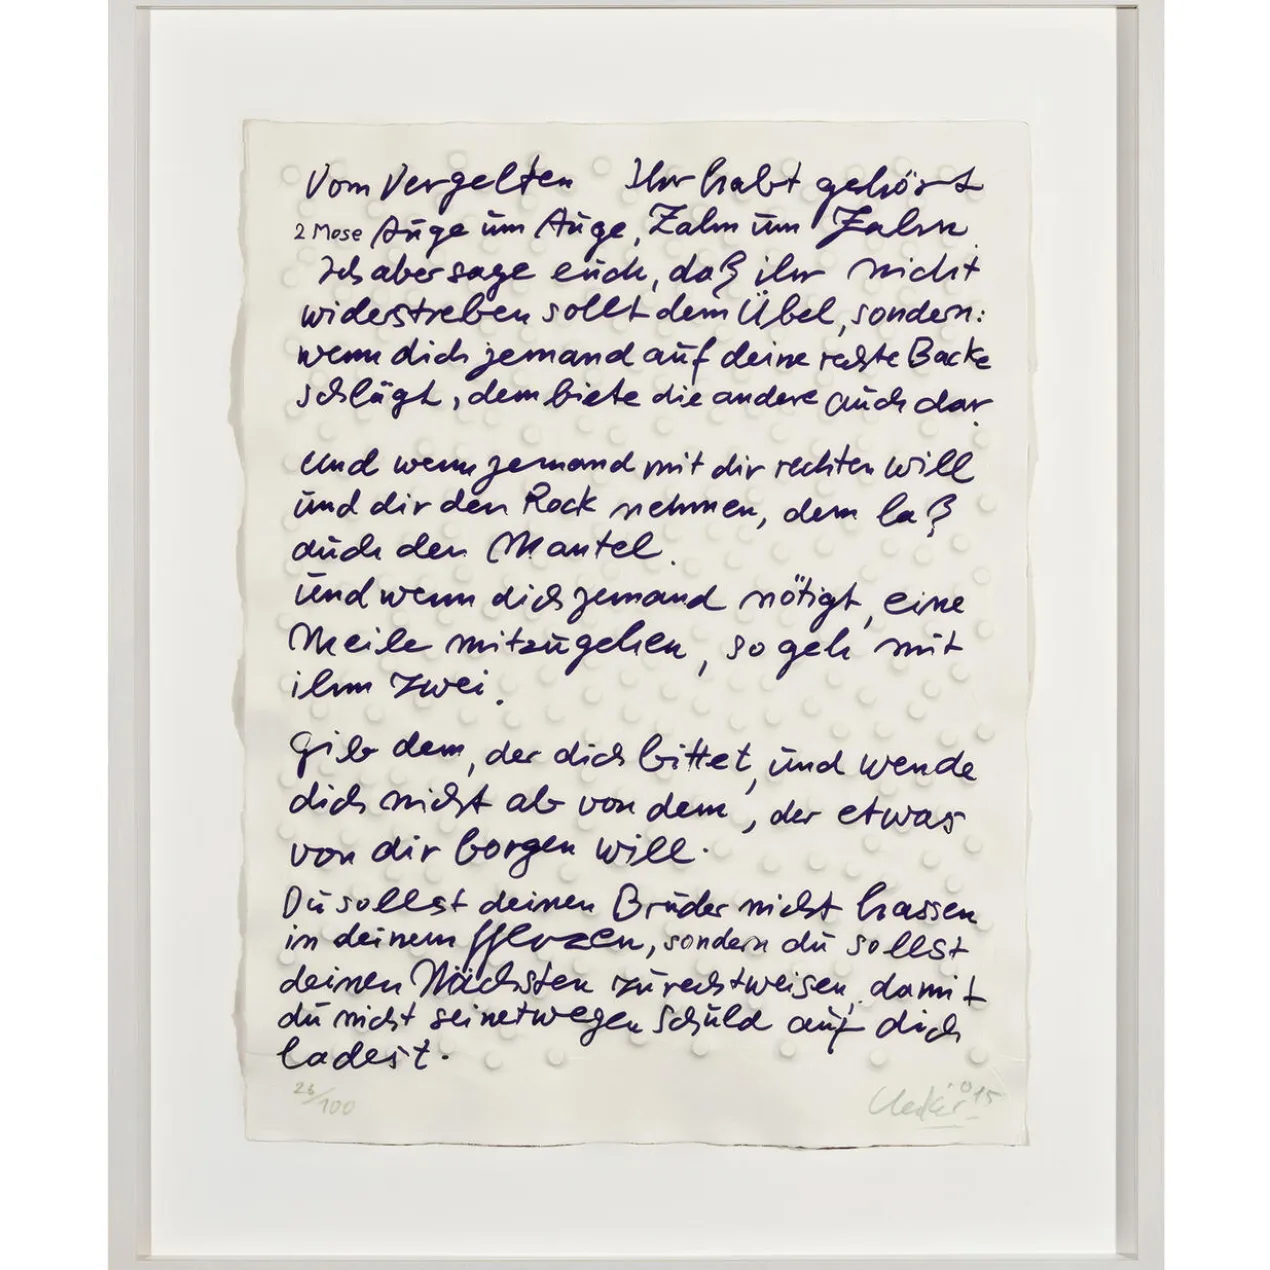 Vom Vergelten Ihr habt gehört
2 Mose Auge um Auge, Zahn um Zahn.
Ich aber sage euch, daß ihr nicht
widerstreben sollt dem Übel, sondern:
wenn dich jemand auf deine rechte Backe
schlägt, dem biete die andere auch dar.
Und wenn jemand mit dir rechten will
und dir den Rock nehmen, dem laß
auch den Mantel.
Und wenn dich jemand nötigt, eine
Meile mitzugehen, so geh mit
ihm zwei.
Gib dem, der dich bittet, und wende
dich nicht ab von dem, der etwas
von dir borgen will.
Du sollst deinen Bruder nicht hassen
in deinem Herzen, sondern du sollst
deinen Nächsten zurechtweisen, damit
du nicht seinetwegen Schuld auf dich
ladest.
26/100 Uecker '015